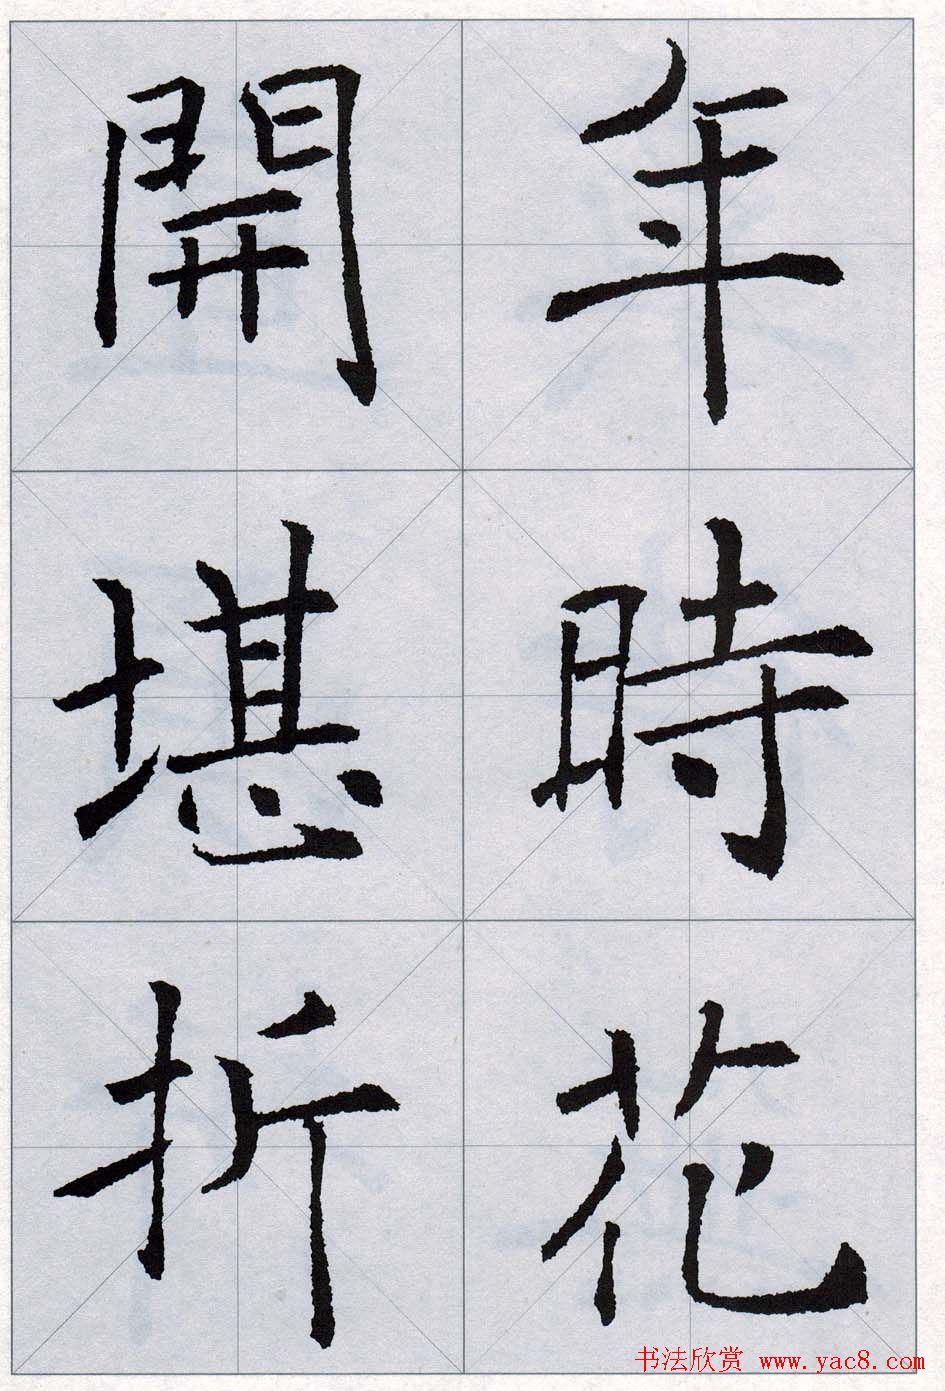 年時花
開堪折
书法欣赏 www.yac8.com